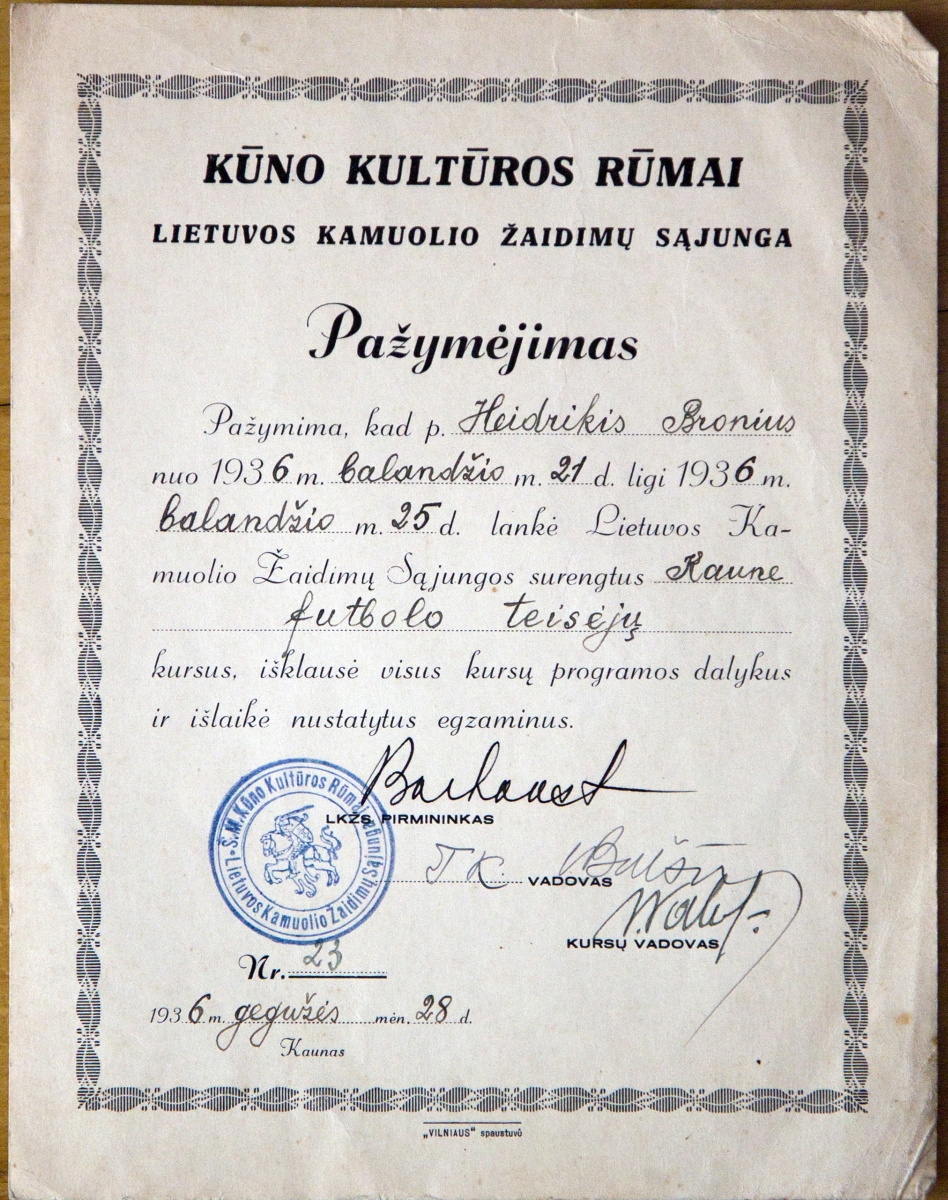 KŪNO KULTŪROS RŪMAI
LIETUVOS KAMUOLIO ŽAIDIMŲ SĄJUNGA
Pažymėjimas
Pažymima, kad p. Heidrikis Bronius
nuo 1936 m. balandžio m. 21 d. ligi 1936 m.
balandžio m. 25 d. lankė Lietuvos Ka-
muolio Žaidimų Sąjungos surengtus Kaune
futbolo teisėjų
kursus, išklausė visus kursų programos dalykus
ir išlaikė nustatytus egzaminus.
LKŽS PIRMININKAS
Š.M. Kūno Kultūros Rūmai
Lietuvos Kamuolio Žaidimų Sąjunga
T K. VADOVAS
KURSŲ VADOVAS
Nr. 23
1936 m. gegužės mėn. 28 d.
Kaunas
„VILNIAUS" spaustuvė